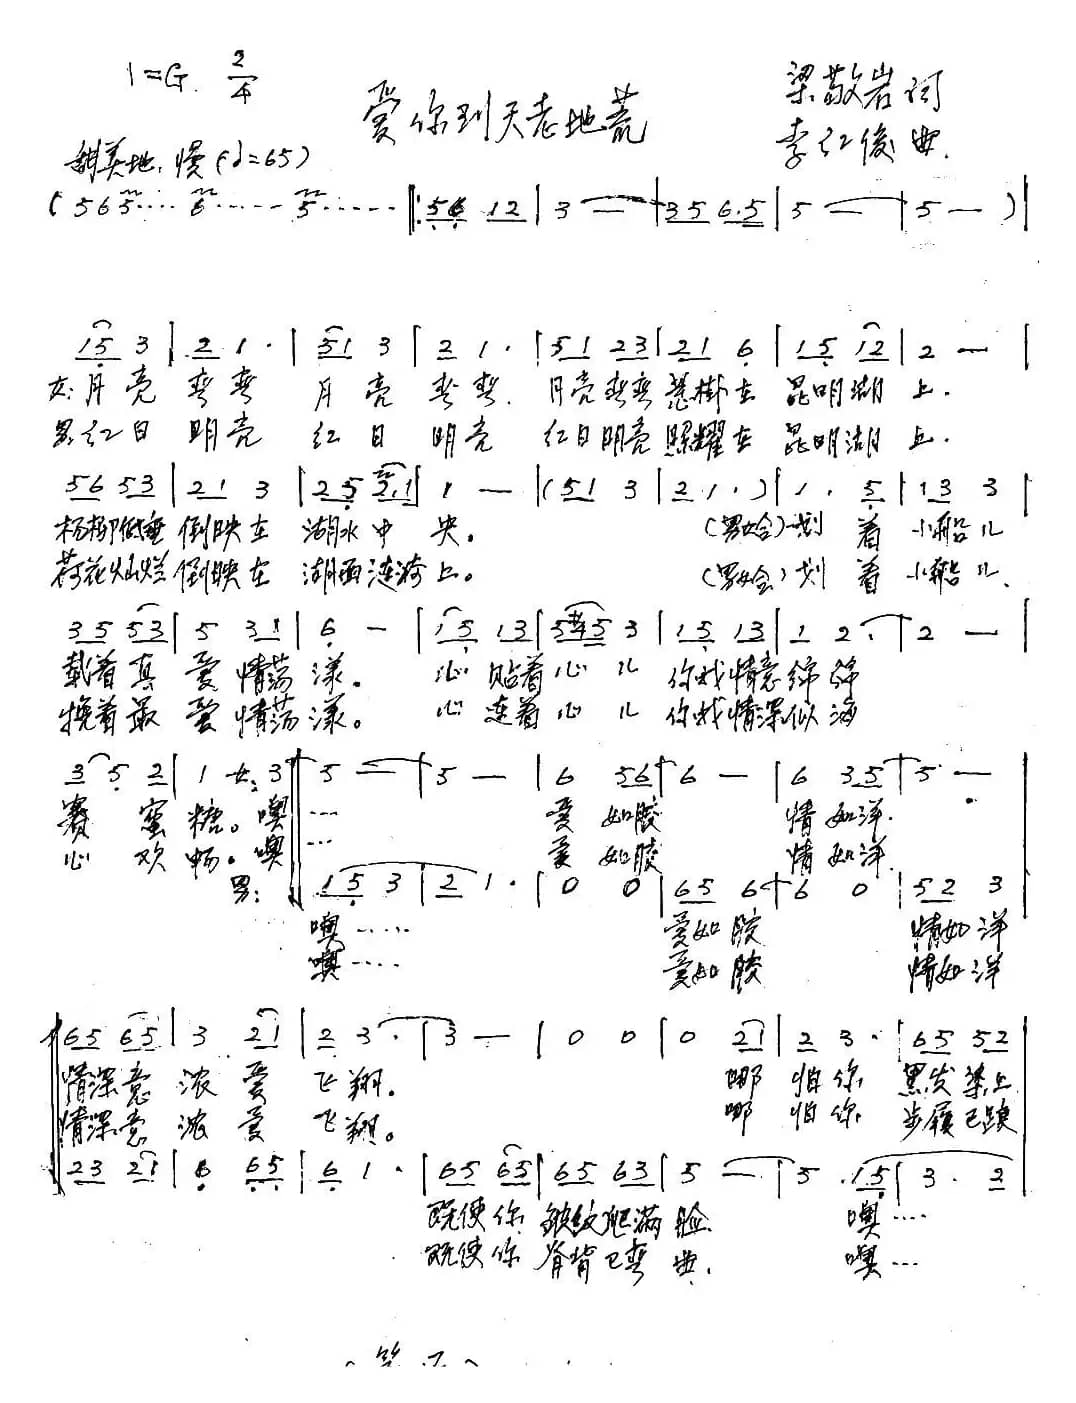 1=G 2/4
爱你到天老地荒
梁敬岩词
李红俊曲.
甜美地,慢(♩=65)
(565···· 6····· 5····· ‖: 56 12 | 3 — | 35 6.5 | 5 — | 5 — ) |
15 3 | 2 1 · | 51 3 | 2 1 · | 51 23 | 21 6 | 15 12 | 2 — |
女:月亮 弯弯 月亮 弯弯. 月亮弯弯悬挂在 昆明湖上.
男:红日 明亮 红日 明亮 红日明亮照耀在 昆明湖上.
56 53 | 21 3 | 25 2.1 | 1 — | (51 3 | 21 · ) | 1 · 5 | 13 3 |
杨柳低垂倒映在 湖水中央。 (男女合)划着小船儿
荷花灿烂倒映在 湖面涟漪上。 (男女合)划着小船儿.
35 53 | 5 31 | 6 — | 15 13 | 5#45 3 | 15 13 | 1 2 · | 2 — |
载着真爱情荡漾。 心贴着心儿 你我情意绵绵
挽着最爱情荡漾。 心连着心儿 你我情深似海
3 5 2 | 1 女:3 ‖ 5 — | 5 — | 6 56 | 6 — | 6 35 | 5 — |
赛蜜糖。噢 ··· 爱如胶 情如洋.
心欢畅。噢 ··· 爱如胶 情如洋.
男: 15 3 | 2 1 · | 0 0 | 65 6 | 6 0 | 52 3
噢····· 爱如胶 情如洋
噢····· 爱如胶 情如洋
65 65 | 3 21 | 2 3 · | 3 — | 0 0 | 0 21 | 2 3 · | 65 52
情深意浓爱飞翔. 哪怕你 黑发染上
情深意浓爱飞翔。 哪怕你 步履已踉
23 21 | 6 65 | 6 1 · | 65 65 | 65 63 | 5 — | 5 · 15 | 3 · 2
既使你 皱纹爬满脸. 噢····
既使你 脊背已弯曲. 噢···